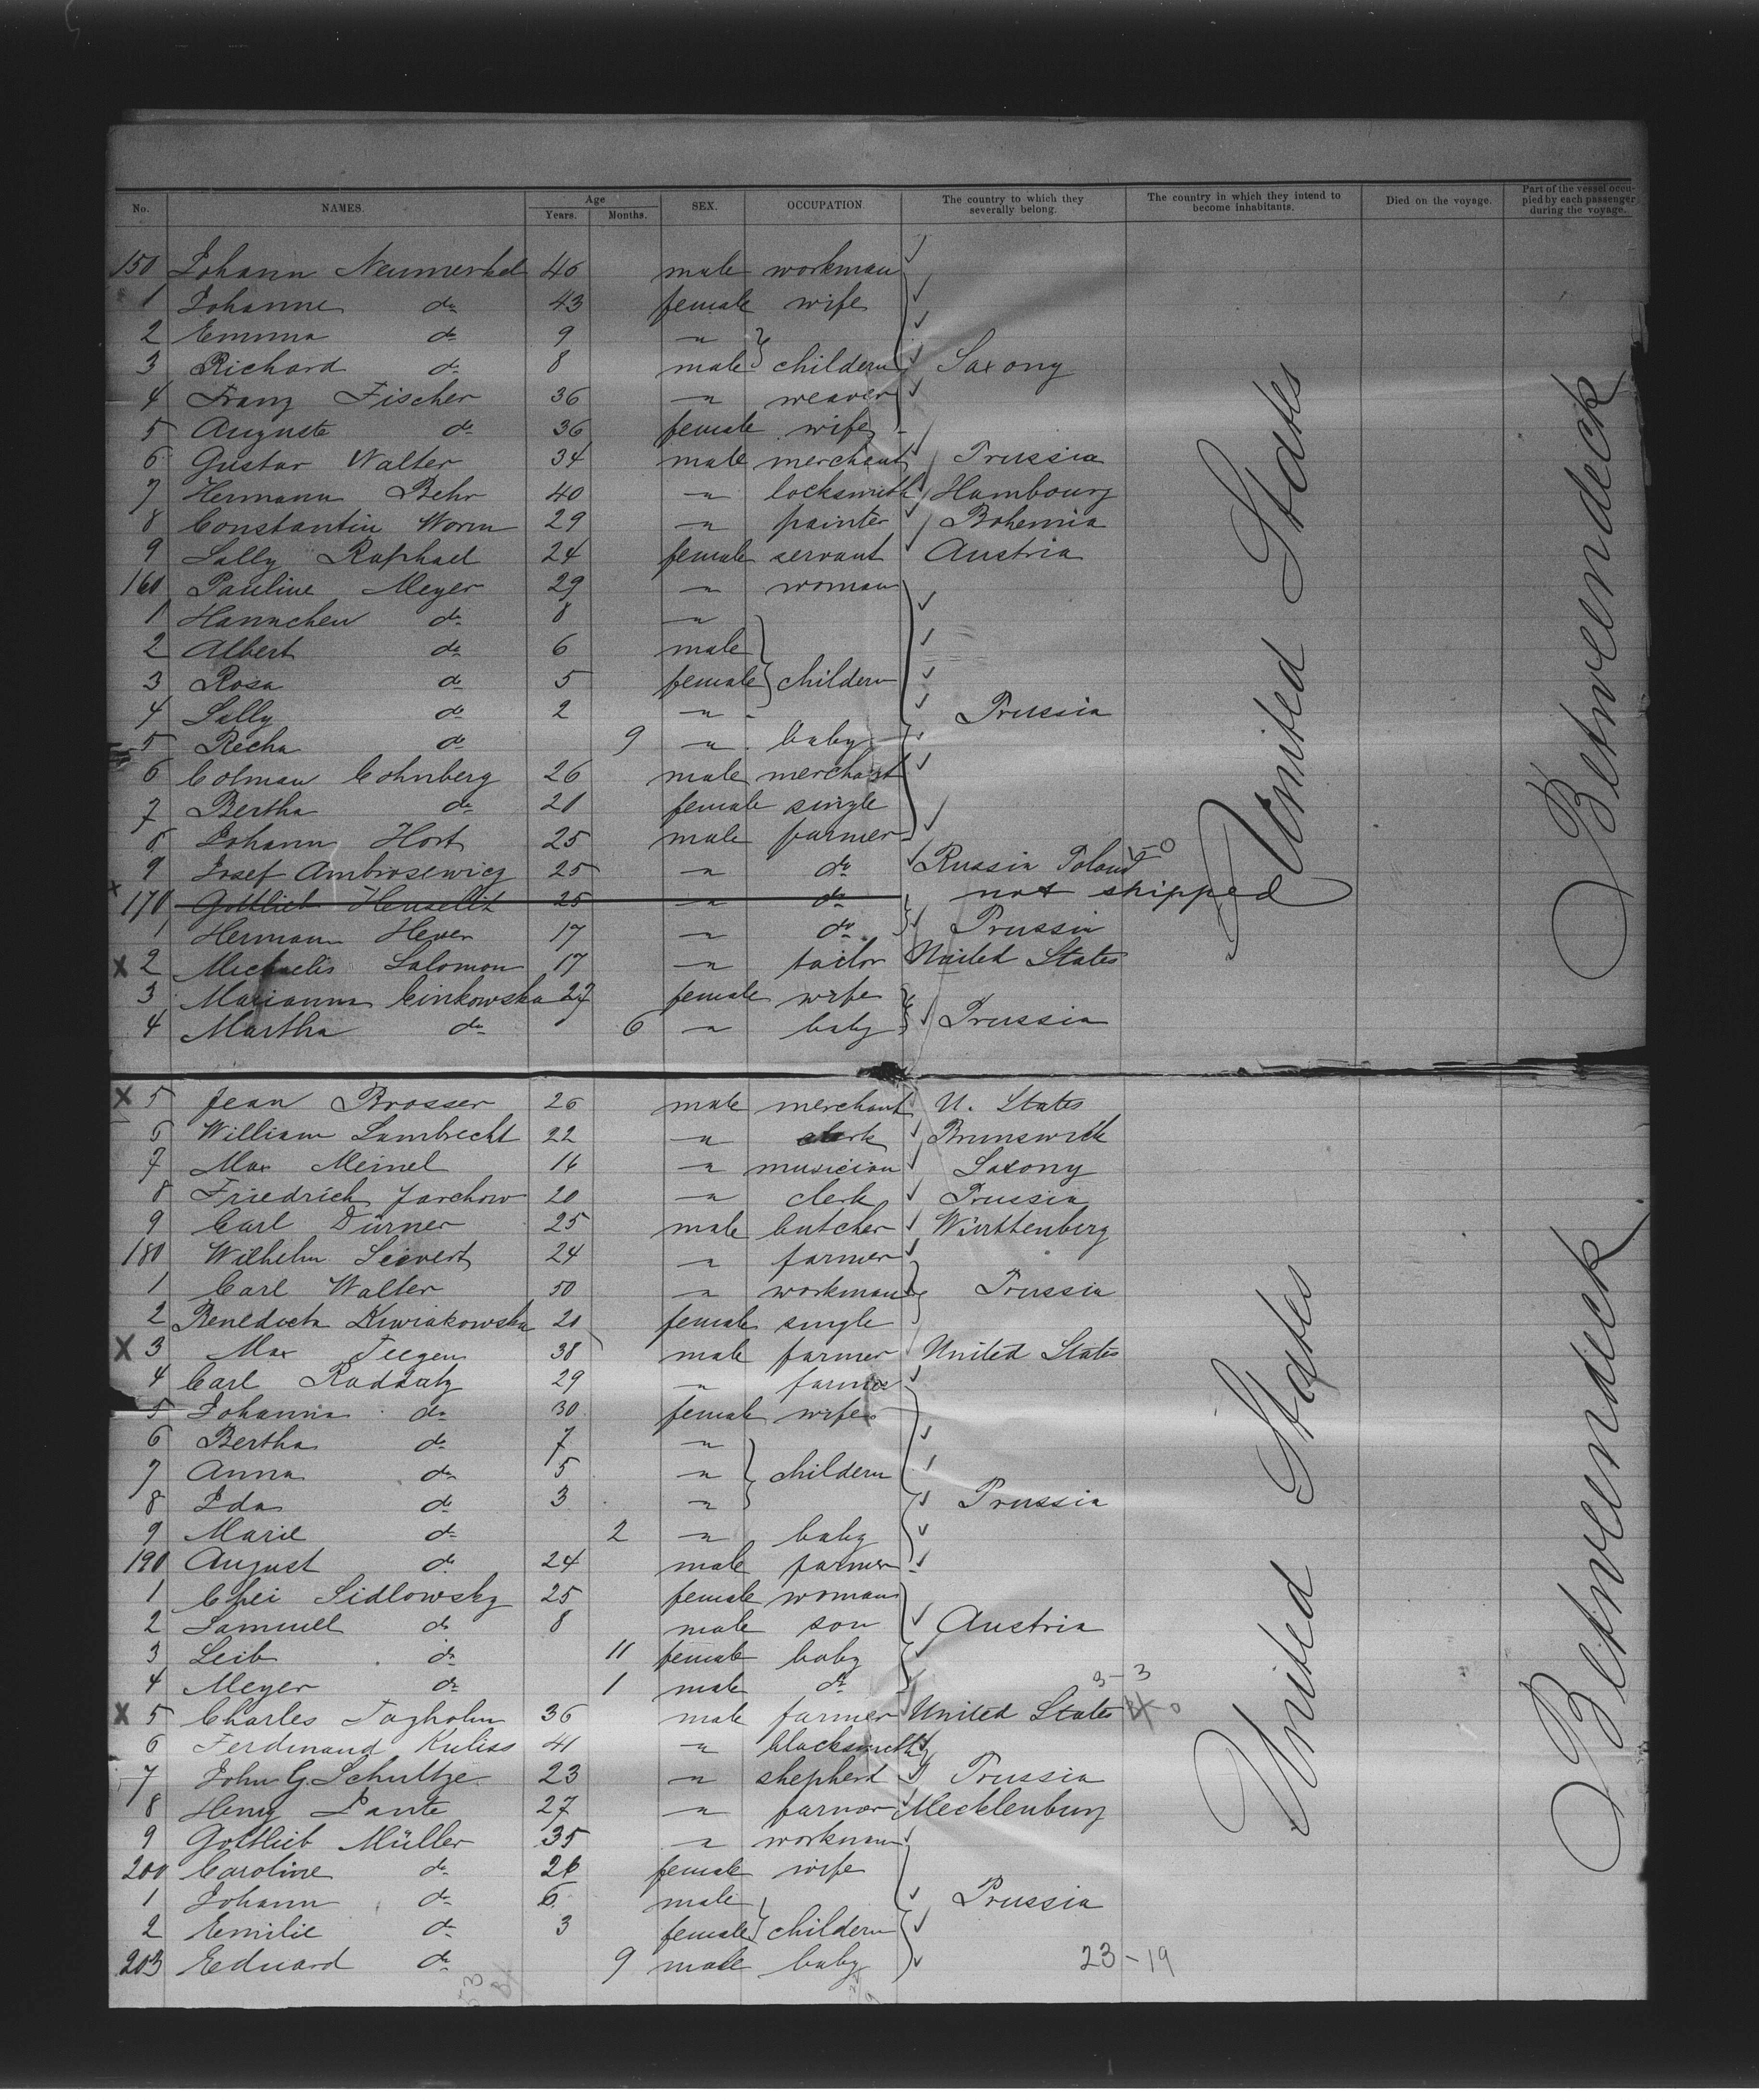 No. NAMES. Age Years. Months. SEX. OCCUPATION. The country to which they severally belong. The country in which they intend to become inhabitants. Died on the voyage. Part of the vessel occupied by each passenger during the voyage.
150 Johann Neumerkel 46 male workman
1 Johanne do 43 female wife
2 Emma do 9 "
3 Richard do 8 male childern Saxony
4 Franz Fischer 36 " weaver
5 Auguste do 36 female wife
6 Gustav Walter 34 male merchant Prussia
7 Hermann Behr 40 " locksmith Hambourg
8 Constantin Worm 29 " painter Bohemia
9 Sally Raphael 24 female servant Austria
160 Pauline Meyer 29 " woman
1 Hannchen do 8 "
2 Albert do 6 male
3 Rosa do 5 female childern
4 Sally do 2 " Prussia
5 Recha do 9 " baby
6 Colman Cohnberg 26 male merchant
7 Bertha do 21 female single
8 Johann Hort 25 male farmer
9 Josef Ambrosewicz 25 " do Russia Poland
170 Gottlieb 25 " do not shipped
1 Herman Heyer 17 " do Prussia
X 2 Michaelis Salomon 17 " tailor United States
3 Marianna Cinkowska 27 female wife
4 Martha do 6 " baby Prussia
X 5 Jean Brosser 26 male merchant U. States
6 William Lambrecht 22 " clerk Brunswick
7 Max Meinel 16 " musician Saxony
8 Friedrich Jarchow 20 " clerk Prussia
9 Carl Dürner 25 male butcher Württenberg
180 Wilhelm Sievert 24 " farmer
1 Carl Walter 50 " workman Prussia
2 Benedicta Kwiakowska 20 female single
X 3 Max Teegen 38 male farmer United States
4 Carl Raddatz 29 " farmer
5 Johanna do 30 female wife
6 Bertha do 7 "
7 Anna do 5 " childern
8 Ida do 3 " Prussia
9 Marie do 2 " baby
190 August do 24 male farmer
1 Chei Sidlowsky 25 female woman
2 Samuel do 8 male son Austria
3 Leib do 11 female baby
4 Meyer do 1 male do
3-3
X 5 Charles Tagholm 36 male farmer United States
6 Ferdinand Kuliss 41 " blacksmith
7 John G. Schultze 23 " shepherd Prussia
8 Henry Pante 27 " farmer Mecklenburg
9 Gottlieb Müller 35 " workman
200 Caroline do 26 female wife
1 Johann do 6 male Prussia
2 Emilie do 3 female childern
203 Eduard do 9 male baby
23-19
United States
Betweendeck
United States
Betweendeck